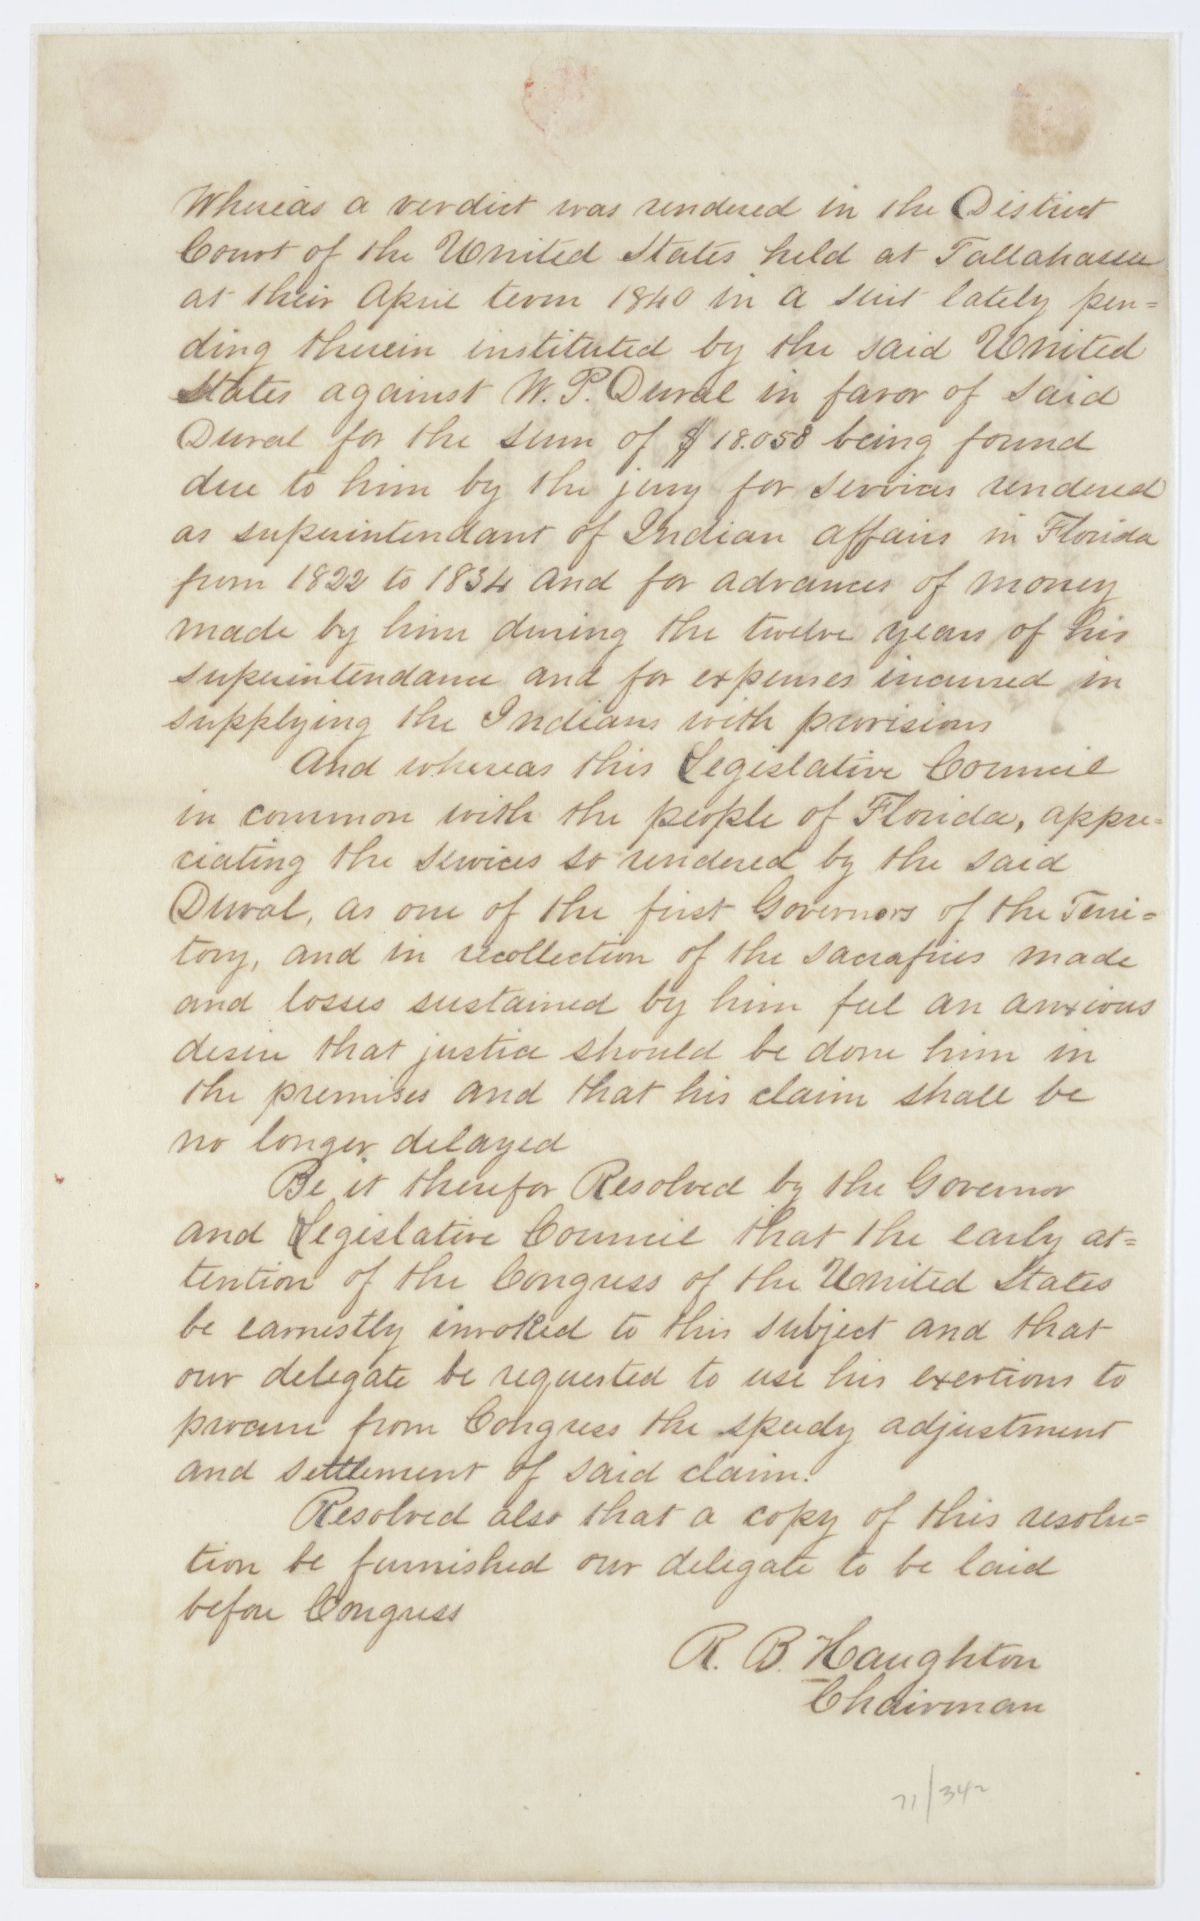 Whereas a verdict was rendered in the District
Court of the United States held at Tallahassee
at their April term 1840 in a suit lately pen=
ding therein instituted by the said United
States against W. P. Duval in favor of said
Duval for the sum of $18.058 being found
due to him by the jury for services rendered
as superintendant of Indian affairs in Florida
from 1822 to 1834 and for advances of money
made by him during the twelve years of his
superintendance and for expenses incurred in
supplying the Indians with provisions
And whereas this Legislative Council
in common with the people of Florida, appre=
ciating the services so rendered by the said
Duval, as one of the first Governors of the Terri=
tory, and in recollection of the sacrafices made
and losses sustained by him feel an anxious
desire that justice should be done him in
the premises and that his claim shall be
no longer delayed
Be it therefor Resolved by the Governor
and Legislative Council that the early at=
tention of the Congress of the United States
be earnestly invoked to this subject and that
our delegate be requested to use his exertions to
procure from Congress the speedy adjustment
and settlement of said claim.
Resolved also that a copy of this resolu=
tion be furnished our delegate to be laid
before Congress
R. B. Haughton
Chairman
71/342